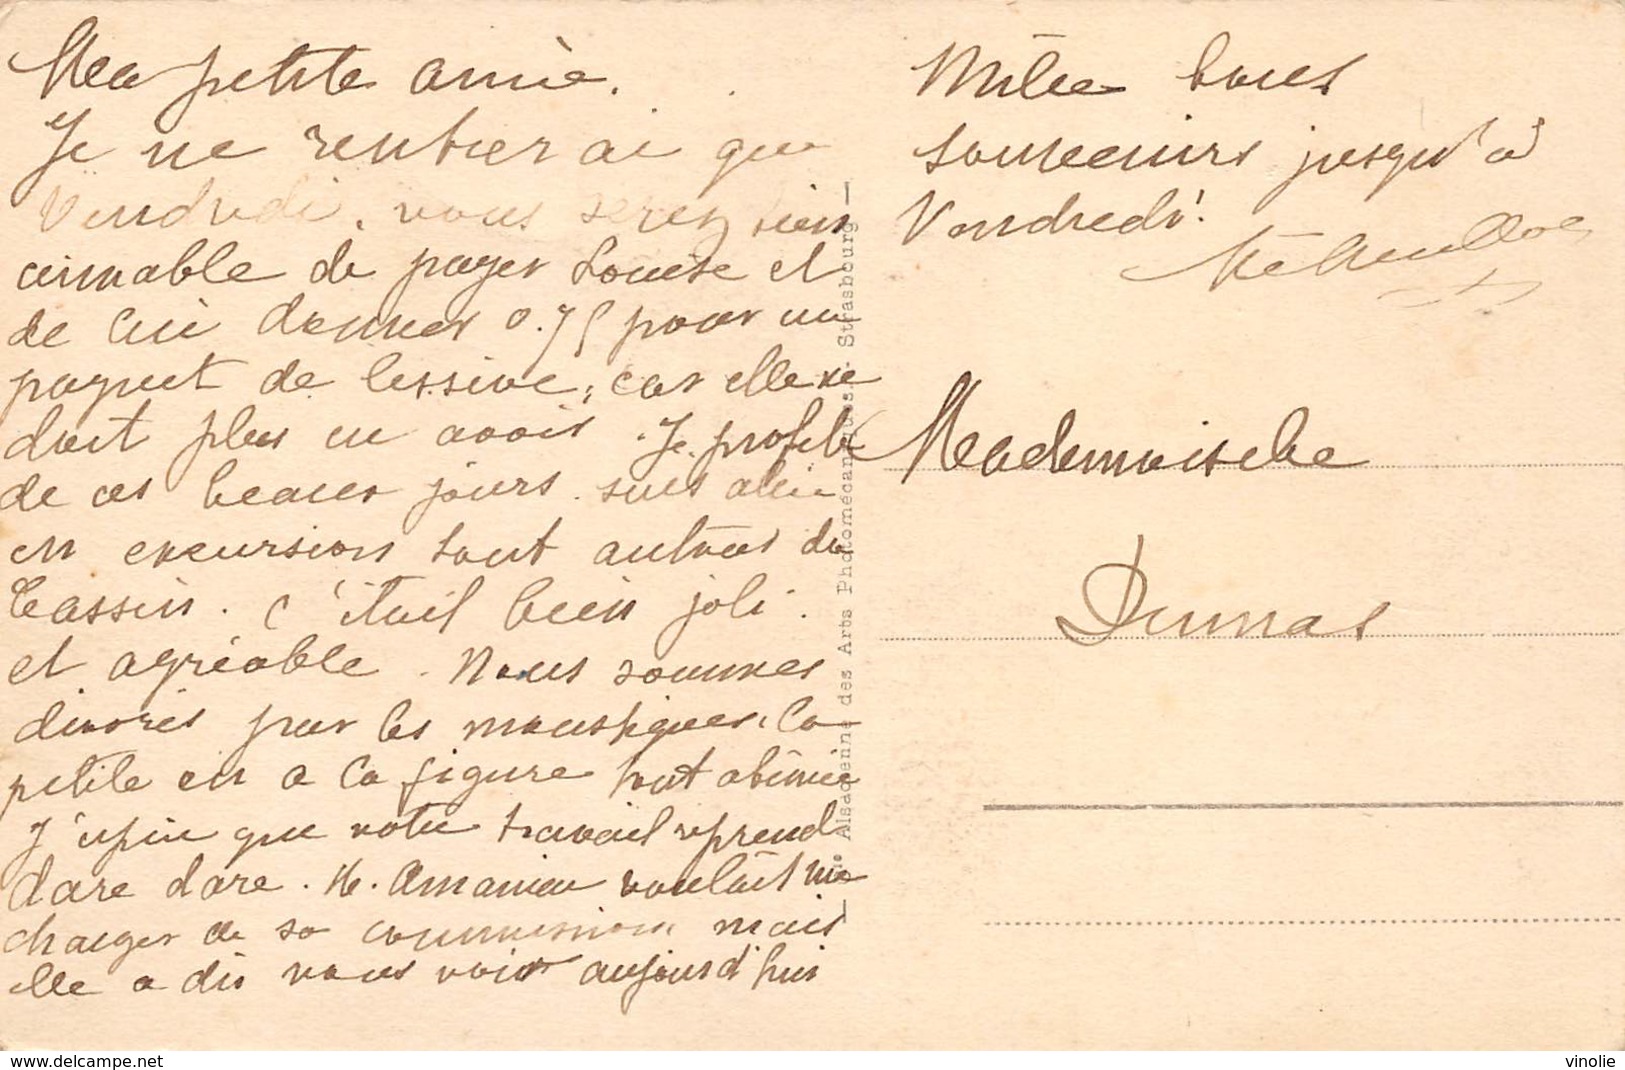 Ma petite amie.
Je ne rentrerai que
Vendredi. vous serez bien
aimable de payer Louise et
de lui donner 0.75 pour un
paquet de lessive, car elle ne
doit plus en avoir. Je profite
de ces beaux jours. suis allée
en excursion tout autour du
bassin. c'était bien joli.
et agréable. Nous sommes
dévorés par les moustiques. la
petite en a la figure tout abîmée
J'espère que votre travail reprend
dare dare. M. Amanieu voulait me
charger de sa commission mais
elle a dû vous voir aujourd'hui
Mille bons
souvenirs jusqu'à
Vendredi.
Mademoiselle
Dumas
Alsacienne des Arts Photomécaniques. Strasbourg
www.delcampe.net
vinolie